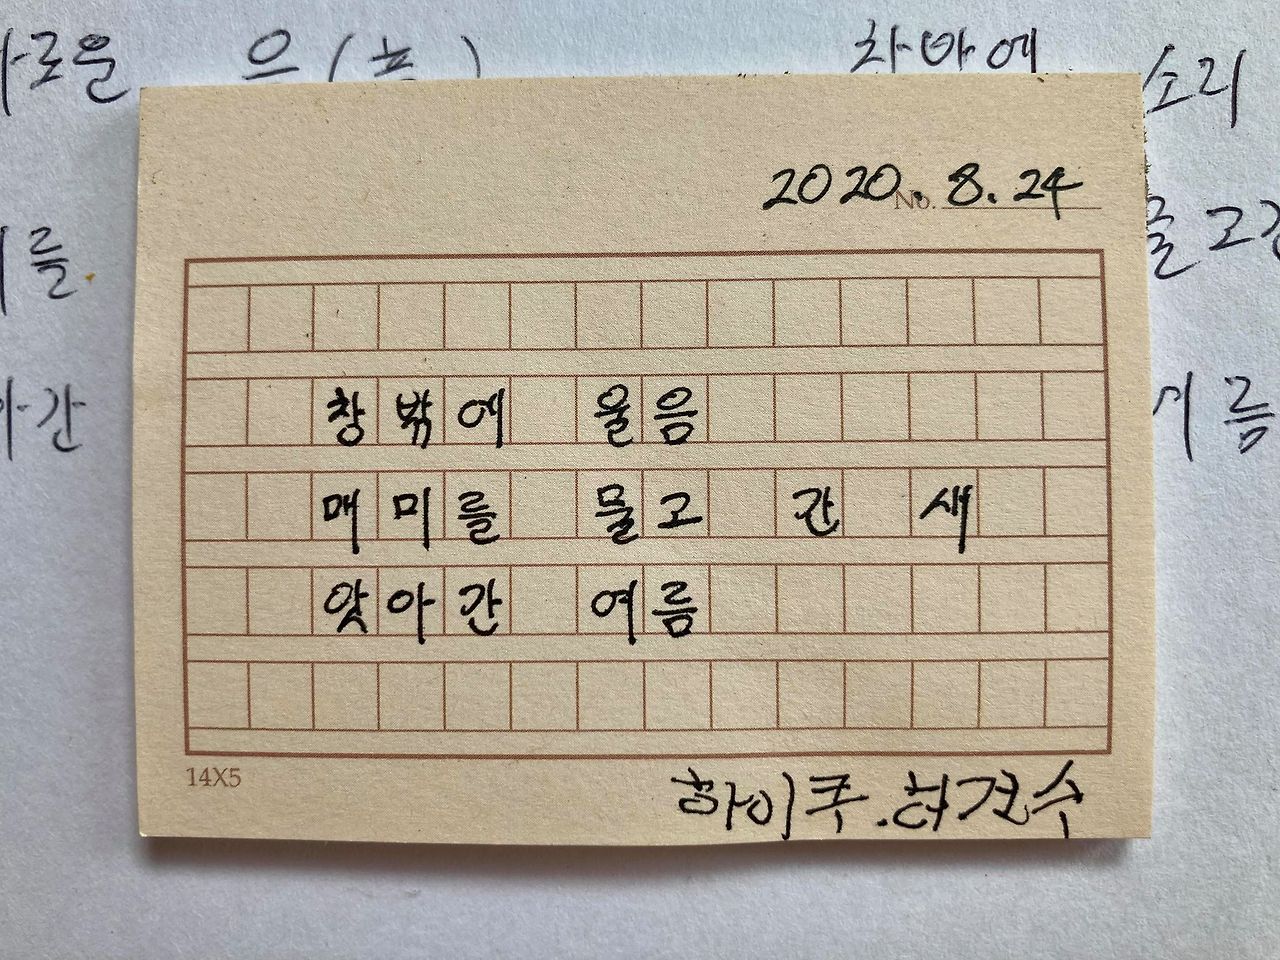 로운 으(흠) 차마에 소리
2020. 8. 24
No.
를 물고간
창밖에 울음
아간 여름
매미를 물고 간 새
앗아간 여름
14X5
하이쿠.허건수